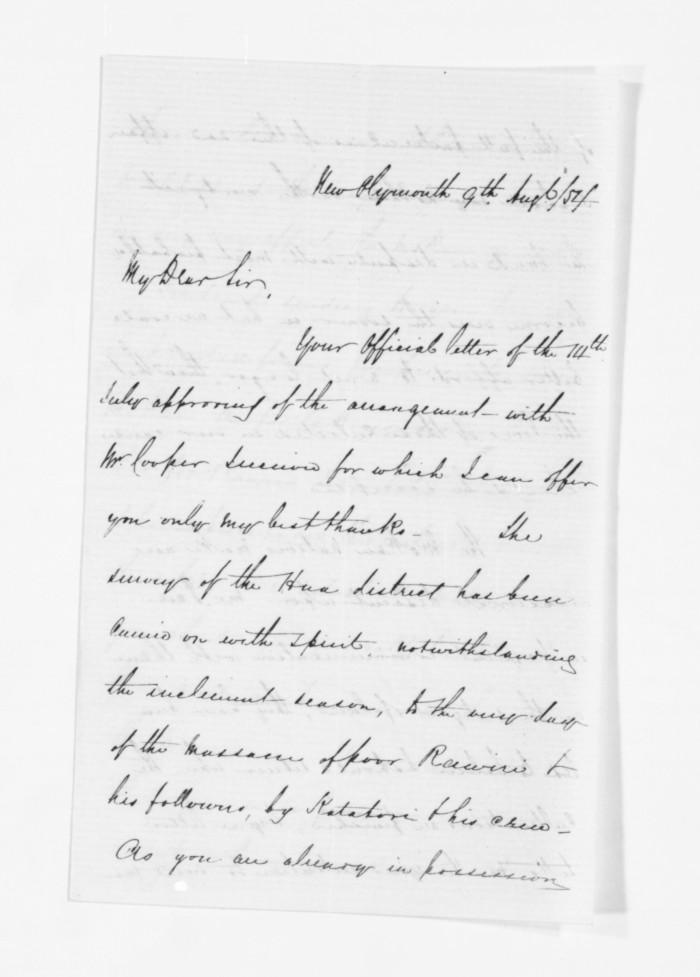 New Plymouth 9th Augt/54
My Dear Sir,
Your Official letter of the 14th
July approving of the arrangement with
Mr. Cooper received for which I can offer
you only my best thanks - The
survey of the Hua district has been
carried on with spirit, notwithstanding
the inclement season, to the very day
of the massacre of poor Rawiri &
his followers, by Katatore & his crew -
As you are already in possession